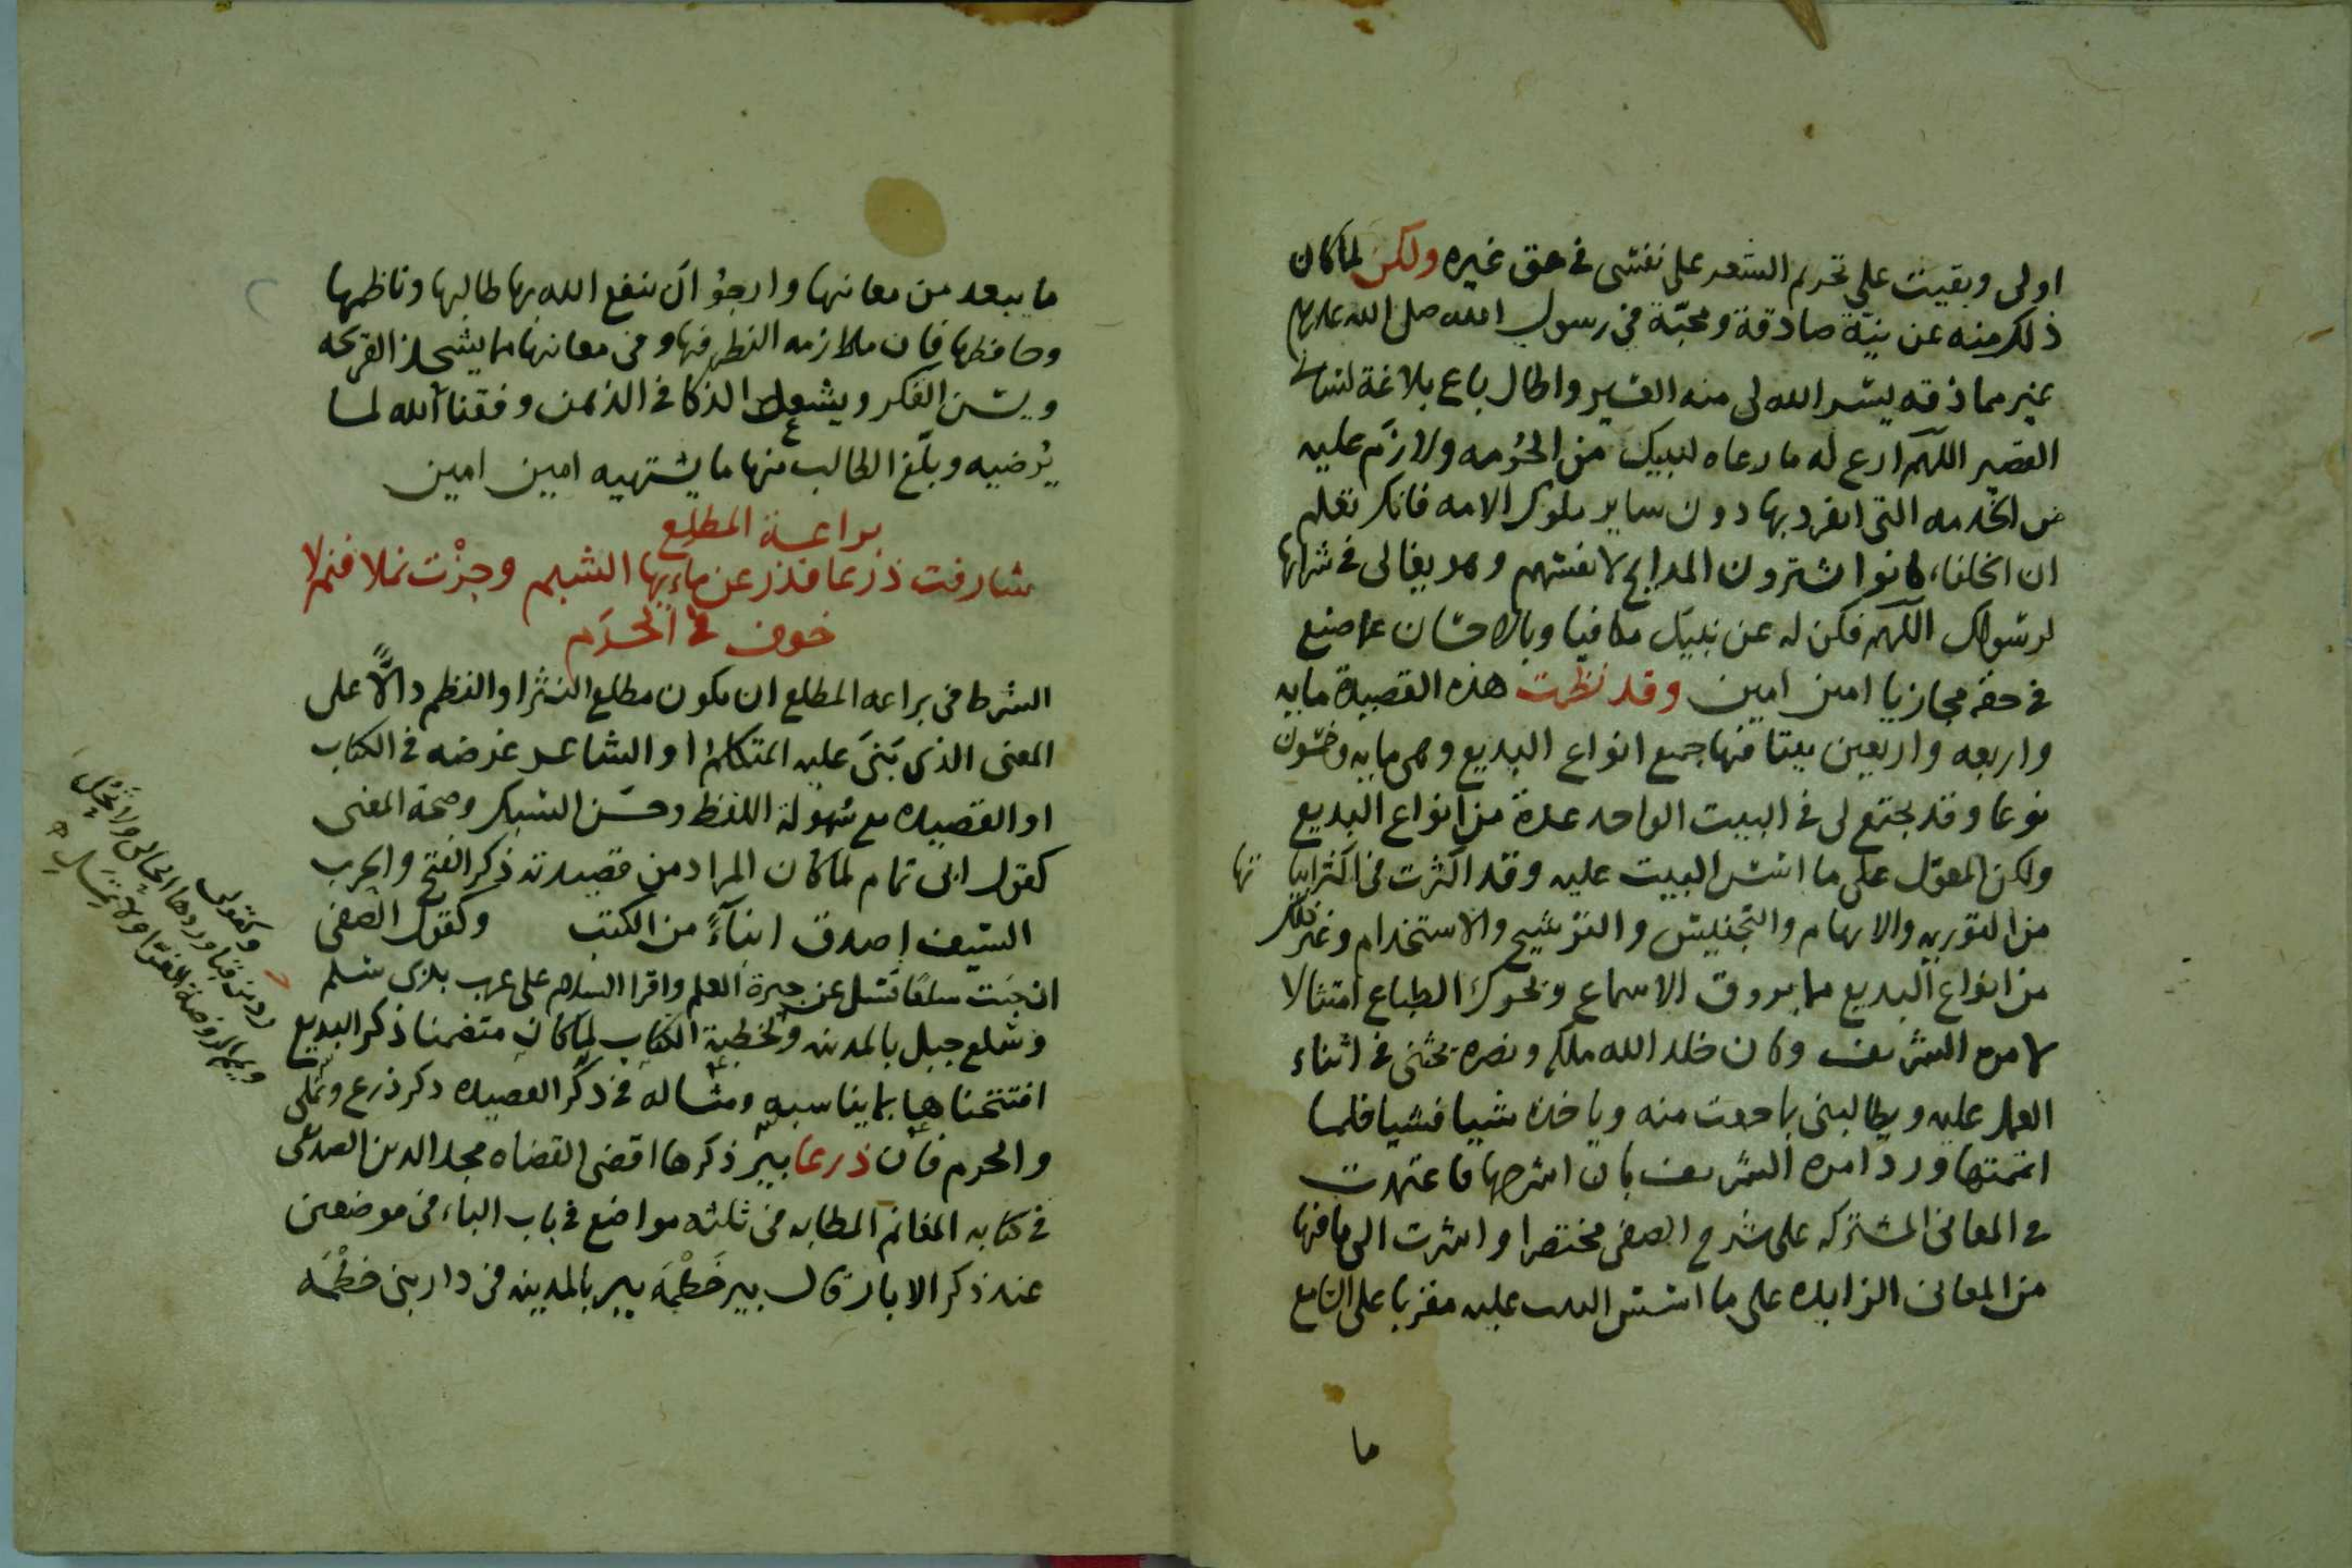 اولى وبقيت على تحريم الشعر على نفسى فى حق غيره ولكن لما كان
ذلك منه عن نية صادقة ومحبّة فى رسول الله صلى الله عليه
غير مماذقه يسّر الله لى منه العسير واطال باع بلاغة لسانى
القصير اللهمّ ارع له ما رعاه لنبيك من الحُرمه ولازَم عليه
من الخدمه التى انفرد بها دون ساير ملوك الامه فانك تعلم
ان الخلفاء كانوا يشترون المدايح لانفسهم وهو يغالى فى شرايها
لرسولك اللهم فكن له عن نبيك مكافيا وبالاحسان عما صنع
فى حقه مجازيا امين امين وقد نظمت هذه القصيدة مايه
واربعه واربعين بيتا فيها جميع انواع البديع وهى مايه وخمسون
نوعا وقد يجتمع لى فى البيت الواحد عدة من انواع البديع
ولكن المعوّل على ما اسّس البيت عليه وقد اكثرت فى اكثر ابيا تها
من التوريه والايهام والتجنيس والترشيح والاستخدام وغير ذلك
من انواع البديع مما يروق الاسماع ويحرك الطباع امتثالا
لامره الشريف وكان خلد الله ملكه ونصره يحثنى فى اثناء
العمل عليه ويطالبنى بما حوت منه وياخذه شيا فشيا فلما
اتممتها ورد امره الشريف بان اشرحها فاعتمدت
فى المعانى المشتركه على شرح الصفى مختصرا واشرت الى ما فيها
من المعانى الزايده على ما اسّس البيت عليه مقربا على السامع
ما
ما يبعد من معانيها وارجوُ ان ينفع الله بها طالبها وناظمها
وحافظها فان ملازمه النظر فيها وفى معانيها مما يشحذ القريحه
ويسن الفكر ويشعل الذكا فى الذهن وفقنا الله لما
يُرضيه وبلّغ الطالب منها ما يشتهيه امين امين
براعة المطلع
شارفت ذرعا فذر عن ماءِ بها الشبم وجزْت نملا فنم لا
خوف فى الحرَم
الشرط فى براعه المطلع ان يكون مطلع النثر او النظم دالاًّ على
المعنى الذى بَنىَ عليه المتكلم او الشاعر غرضه فى الكتاب
او القصيده مع سُهولة اللفظ وحسْن السبك وصحة المعنى
كقول ابى تمام لما كان المراد من قصيدته ذكر الفتح والحرب
السيف اصدق انبآءً من الكتب وكقول الصفى
ان جئت سلعًا فسل عن جيرة العلم واقرا السلام على عرب بذى سلم
وسلع جبل بالمدينه ولخطبة الكتاب لما كان متضمنا ذكر البديع
افتتحناها بما يناسبه ومثاله فى ذكر القصيده ذكر ذرع ونملى
والحرم فان ذرعا بير ذكرها اقضى القضاه مجد الدين الصديقى
فى كتابه المغانم المطابه فى ثلثه مواضع فى باب الباء فى موضعين
عند ذكر الابار قال بير خَطْمَه بير بالمدينه فى دار بنى خطْمَه
وكقولى